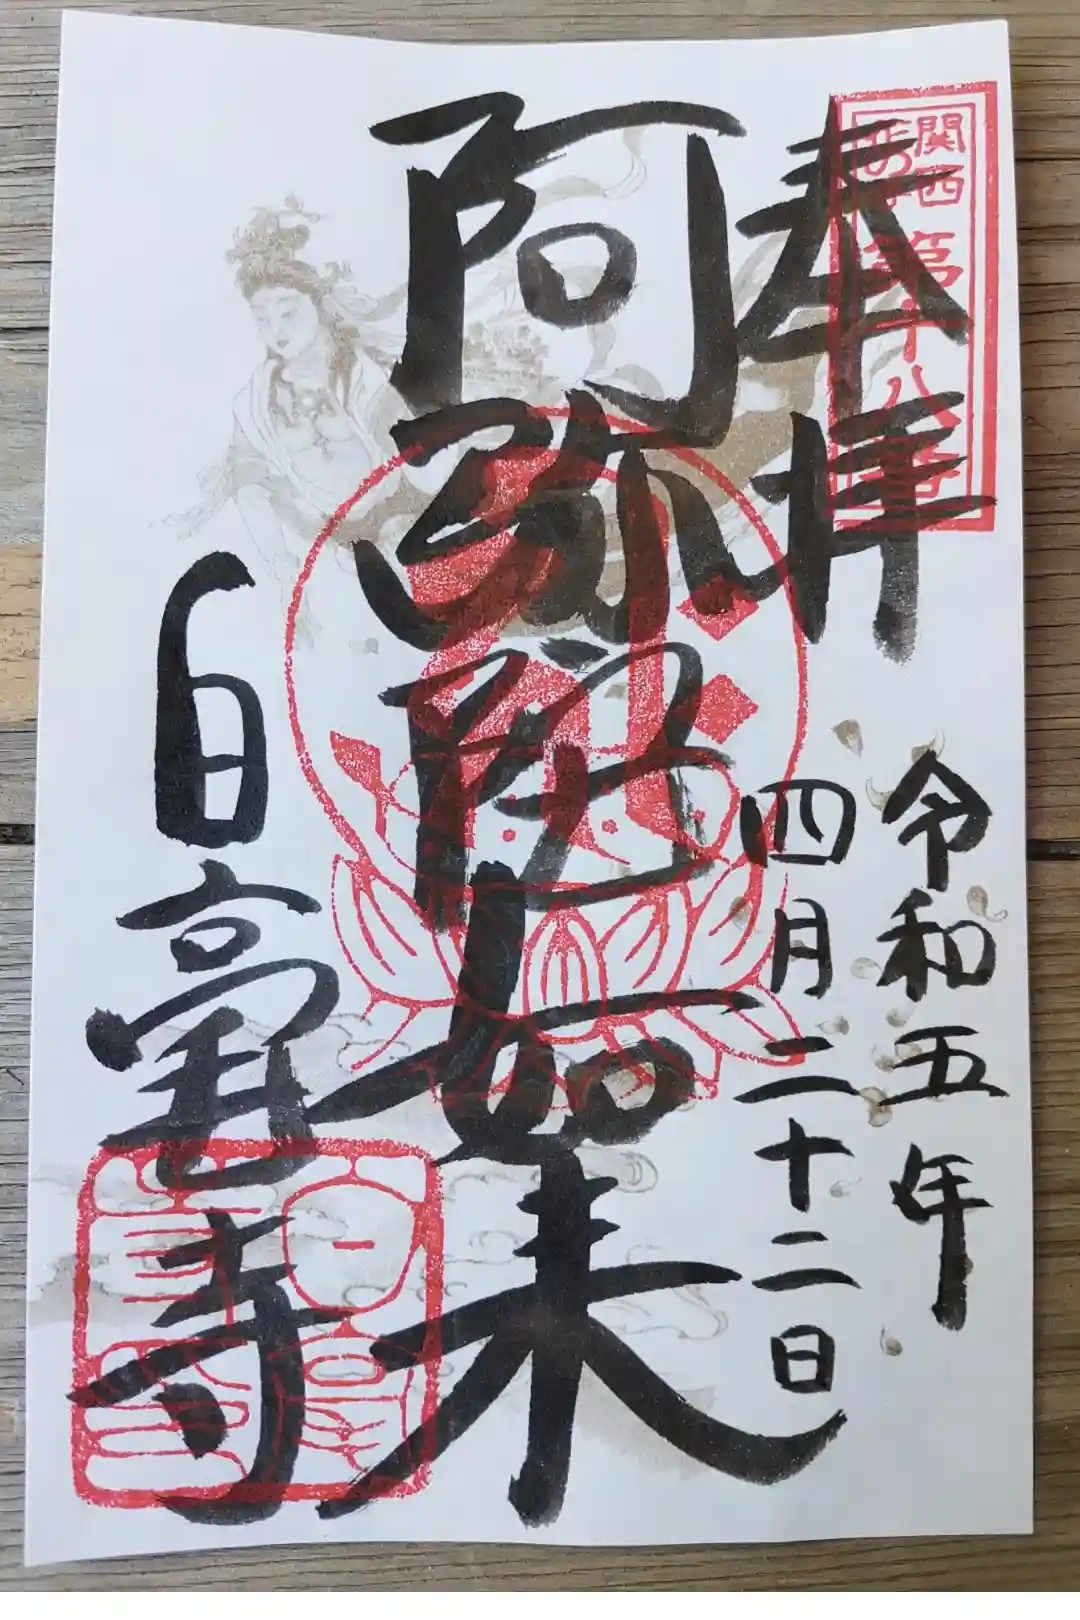 奉拝
関西
花の寺
第十八番
令和五年
四月二十二日
阿弥陀如来
白毫寺